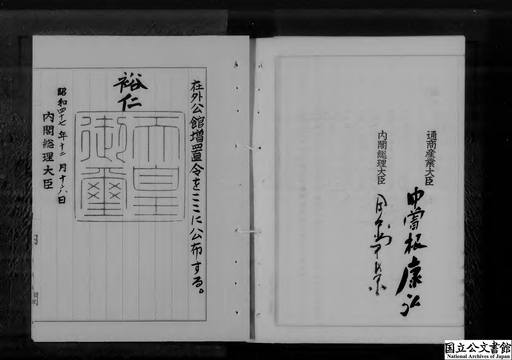 通商産業大臣
中曾根康弘
内閣総理大臣
在外公館増置令をここに公布する。
裕仁
天皇
御璽
昭和四十七年十二月
内閣総理大臣
国立公文書館
National Archives of Japan